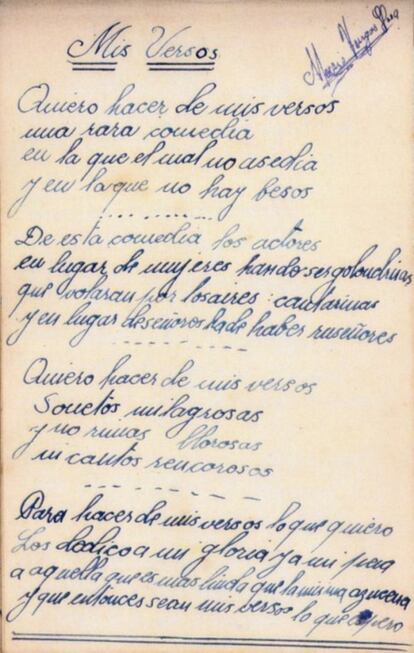 Mis Versos
Mario Vargas Llosa
Quiero hacer de mis versos
una rara comedia
en la que el mal no asedia
y en la que no hay besos
De esta comedia los actores
en lugar de mujeres han de ser golondrinas
que volaran por los aires: cantarinas
y en lugar de señores ha de haber ruseñores
Quiero hacer de mis versos
Sonetos milagrosas
y no rimas llorosas
ni cantos rencorosos
Para hacer de mis versos lo que quiero
Los dedico a mi gloria y a mi pena
a aquella que es mas linda que la misma azucena
y que entonces sean mis versos lo que espero